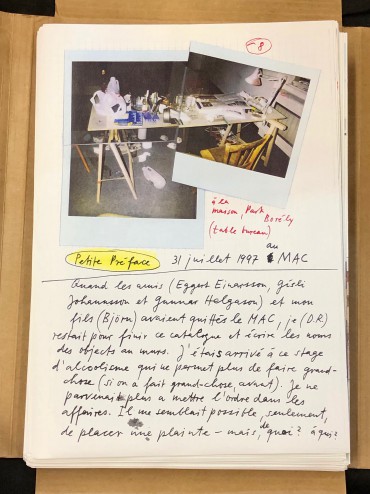 - 8
à la
maison, Park
Borély
(table bureau)
Petite Préface 31 juillet 1997 au MAC
Quand les amis (Eggert Einarsson, Gísli
Johannsson et Gunnar Helgason) et mon
fils (Björn) avaient quittés le MAC, je (D.R)
restait pour finir ce catalogue et écrire les noms
des objects au murs. J'étais arrivé à ce stage
d'alcolisme qui ne permet plus de faire grand-
chose (si on a fait grand-chose, avant). Je ne
parvenais plus a mettre l'ordre dans les
affaires. Il me semblait possible, seulement,
de placer une plainte - mais, de quoi? à qui?